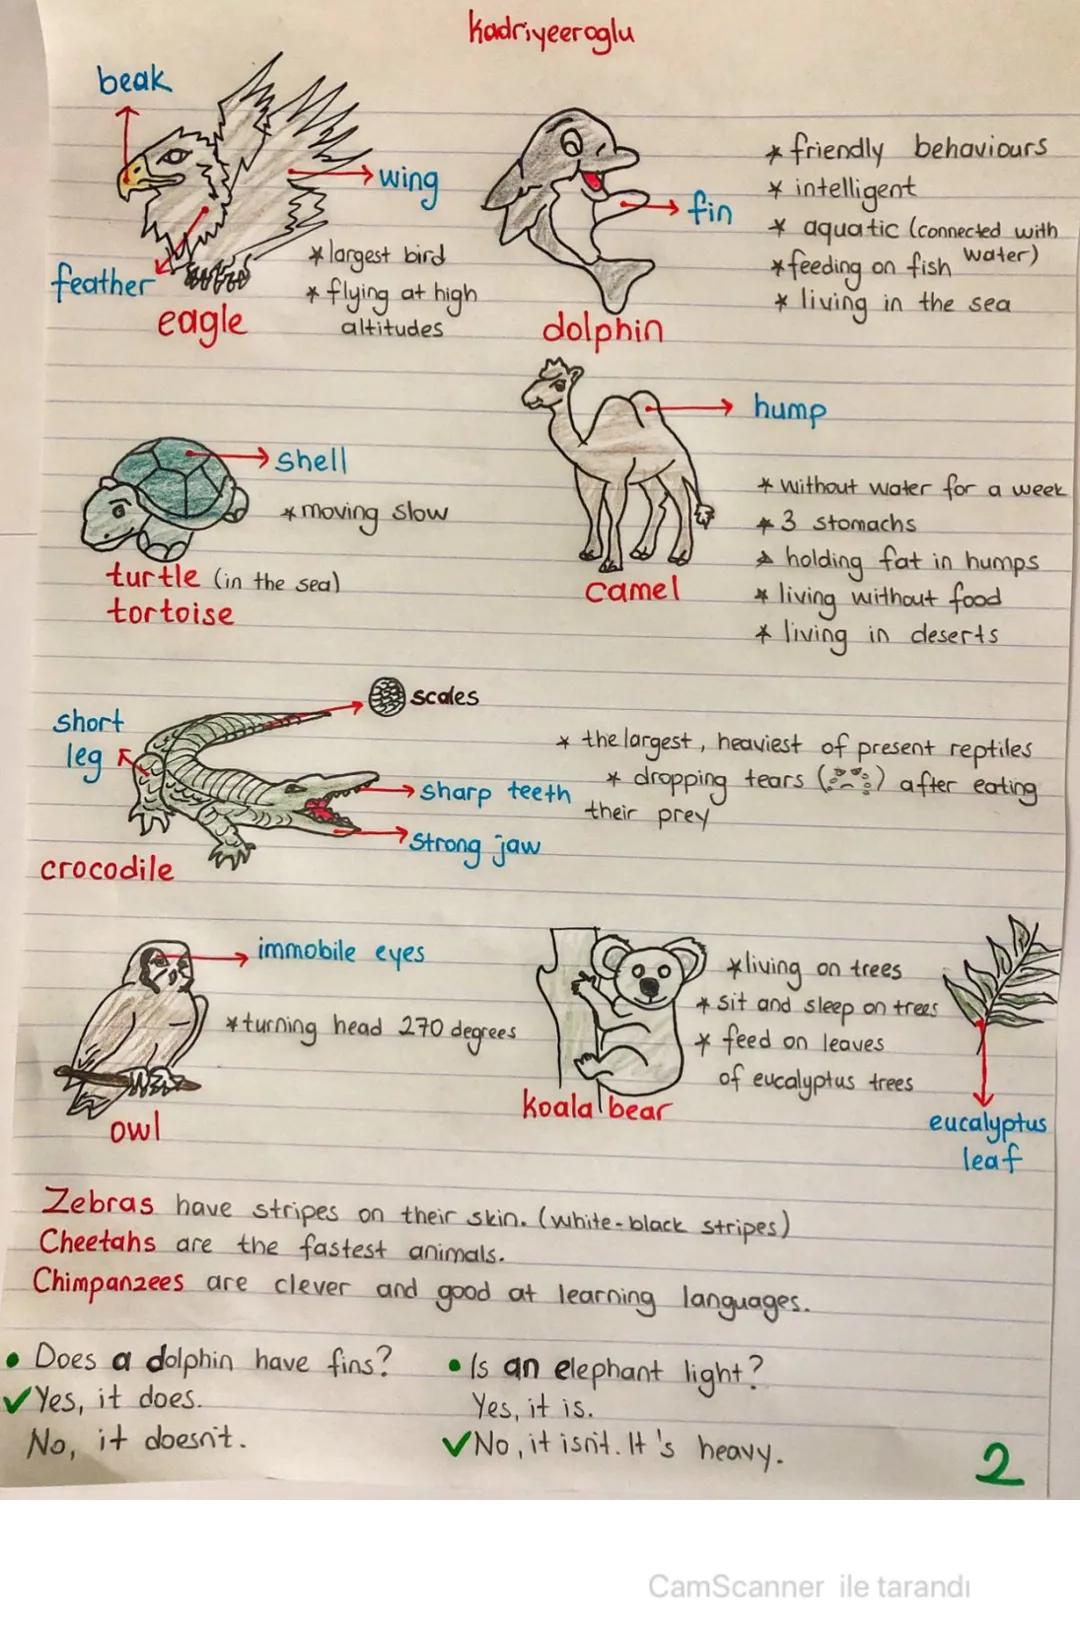 kadriyeeroglu
beak
wing
feather
eagle
* largest bird
* flying at high
altitudes
fin
dolphin
* friendly behaviours
* intelligent
* aquatic (connected with
water)
* feeding on fish
* living in the sea
shell
* moving slow
turtle (in the sea)
tortoise
hump
camel
* without water for a week
* 3 stomachs
* holding fat in humps
* living without food
* living in deserts
scales
short
leg
sharp teeth
strong jaw
crocodile
* the largest, heaviest of present reptiles
* dropping tears ( ) after eating
their prey
immobile eyes
* turning head 270 degrees
owl
koala bear
* living on trees
* sit and sleep on trees
* feed on leaves
of eucalyptus trees
eucalyptus
leaf
Zebras have stripes on their skin. (white-black stripes)
Cheetahs are the fastest animals.
Chimpanzees are clever and good at learning languages.
• Does a dolphin have fins?
✓ Yes, it does.
No, it doesn't.
• Is an elephant light?
Yes, it is.
✓ No, it isn't. It's heavy.
2
CamScanner ile tarandı